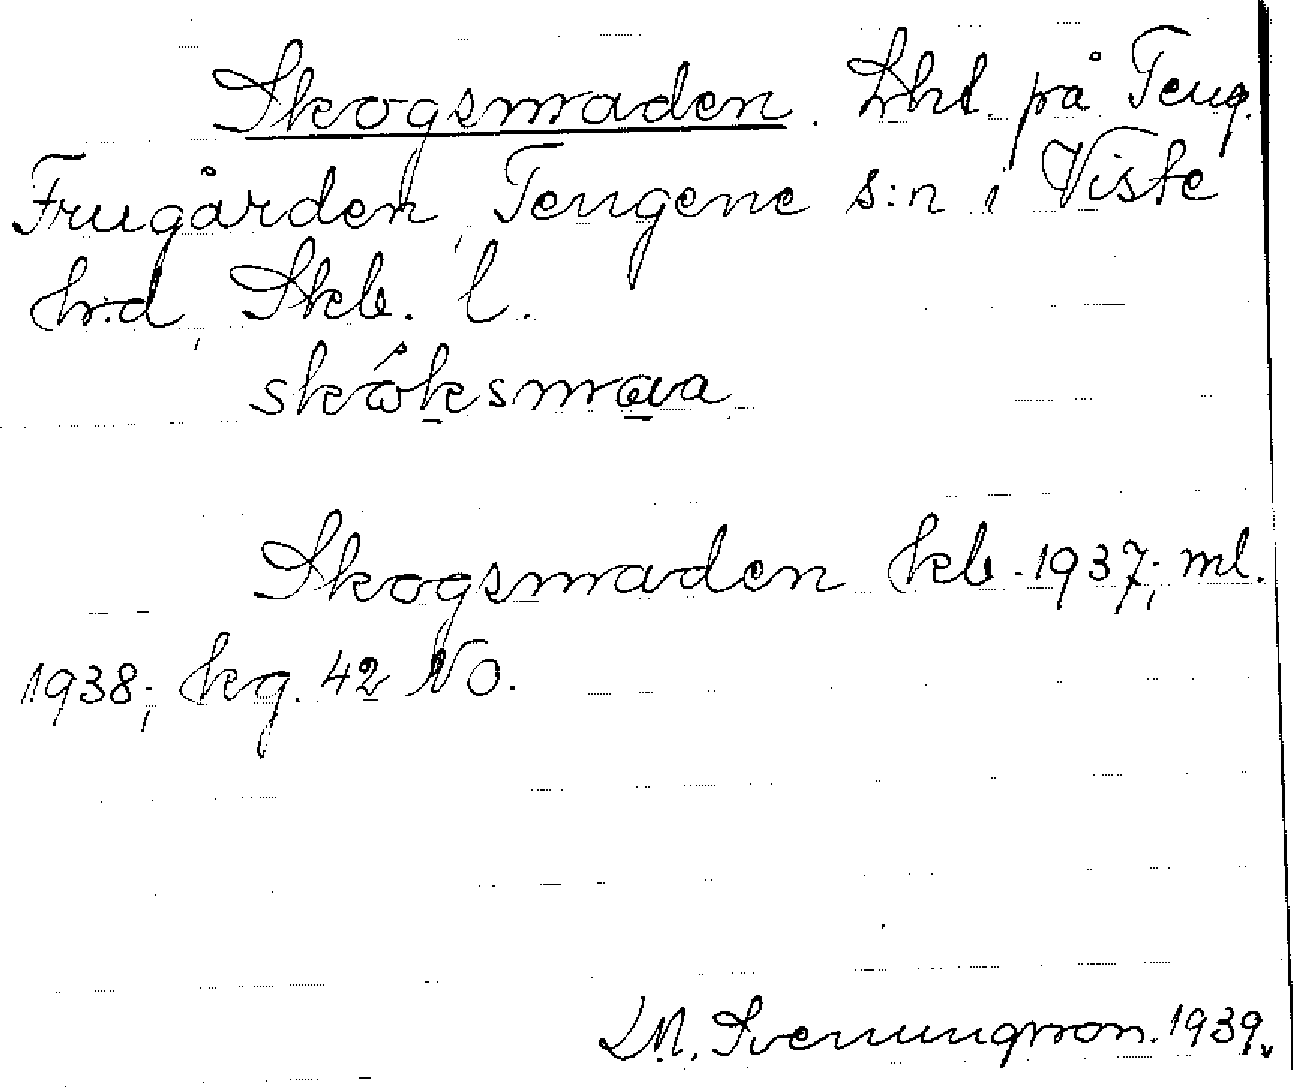 Skogsmaden. Lht. på Teng.
Frugården, Tengene s:n i Viste
hrd, Skb. l.
skóksmaa
Skogsmaden kb. 1937; ml.
1938; kg. 42 NO.
Svenungsson. 1939.